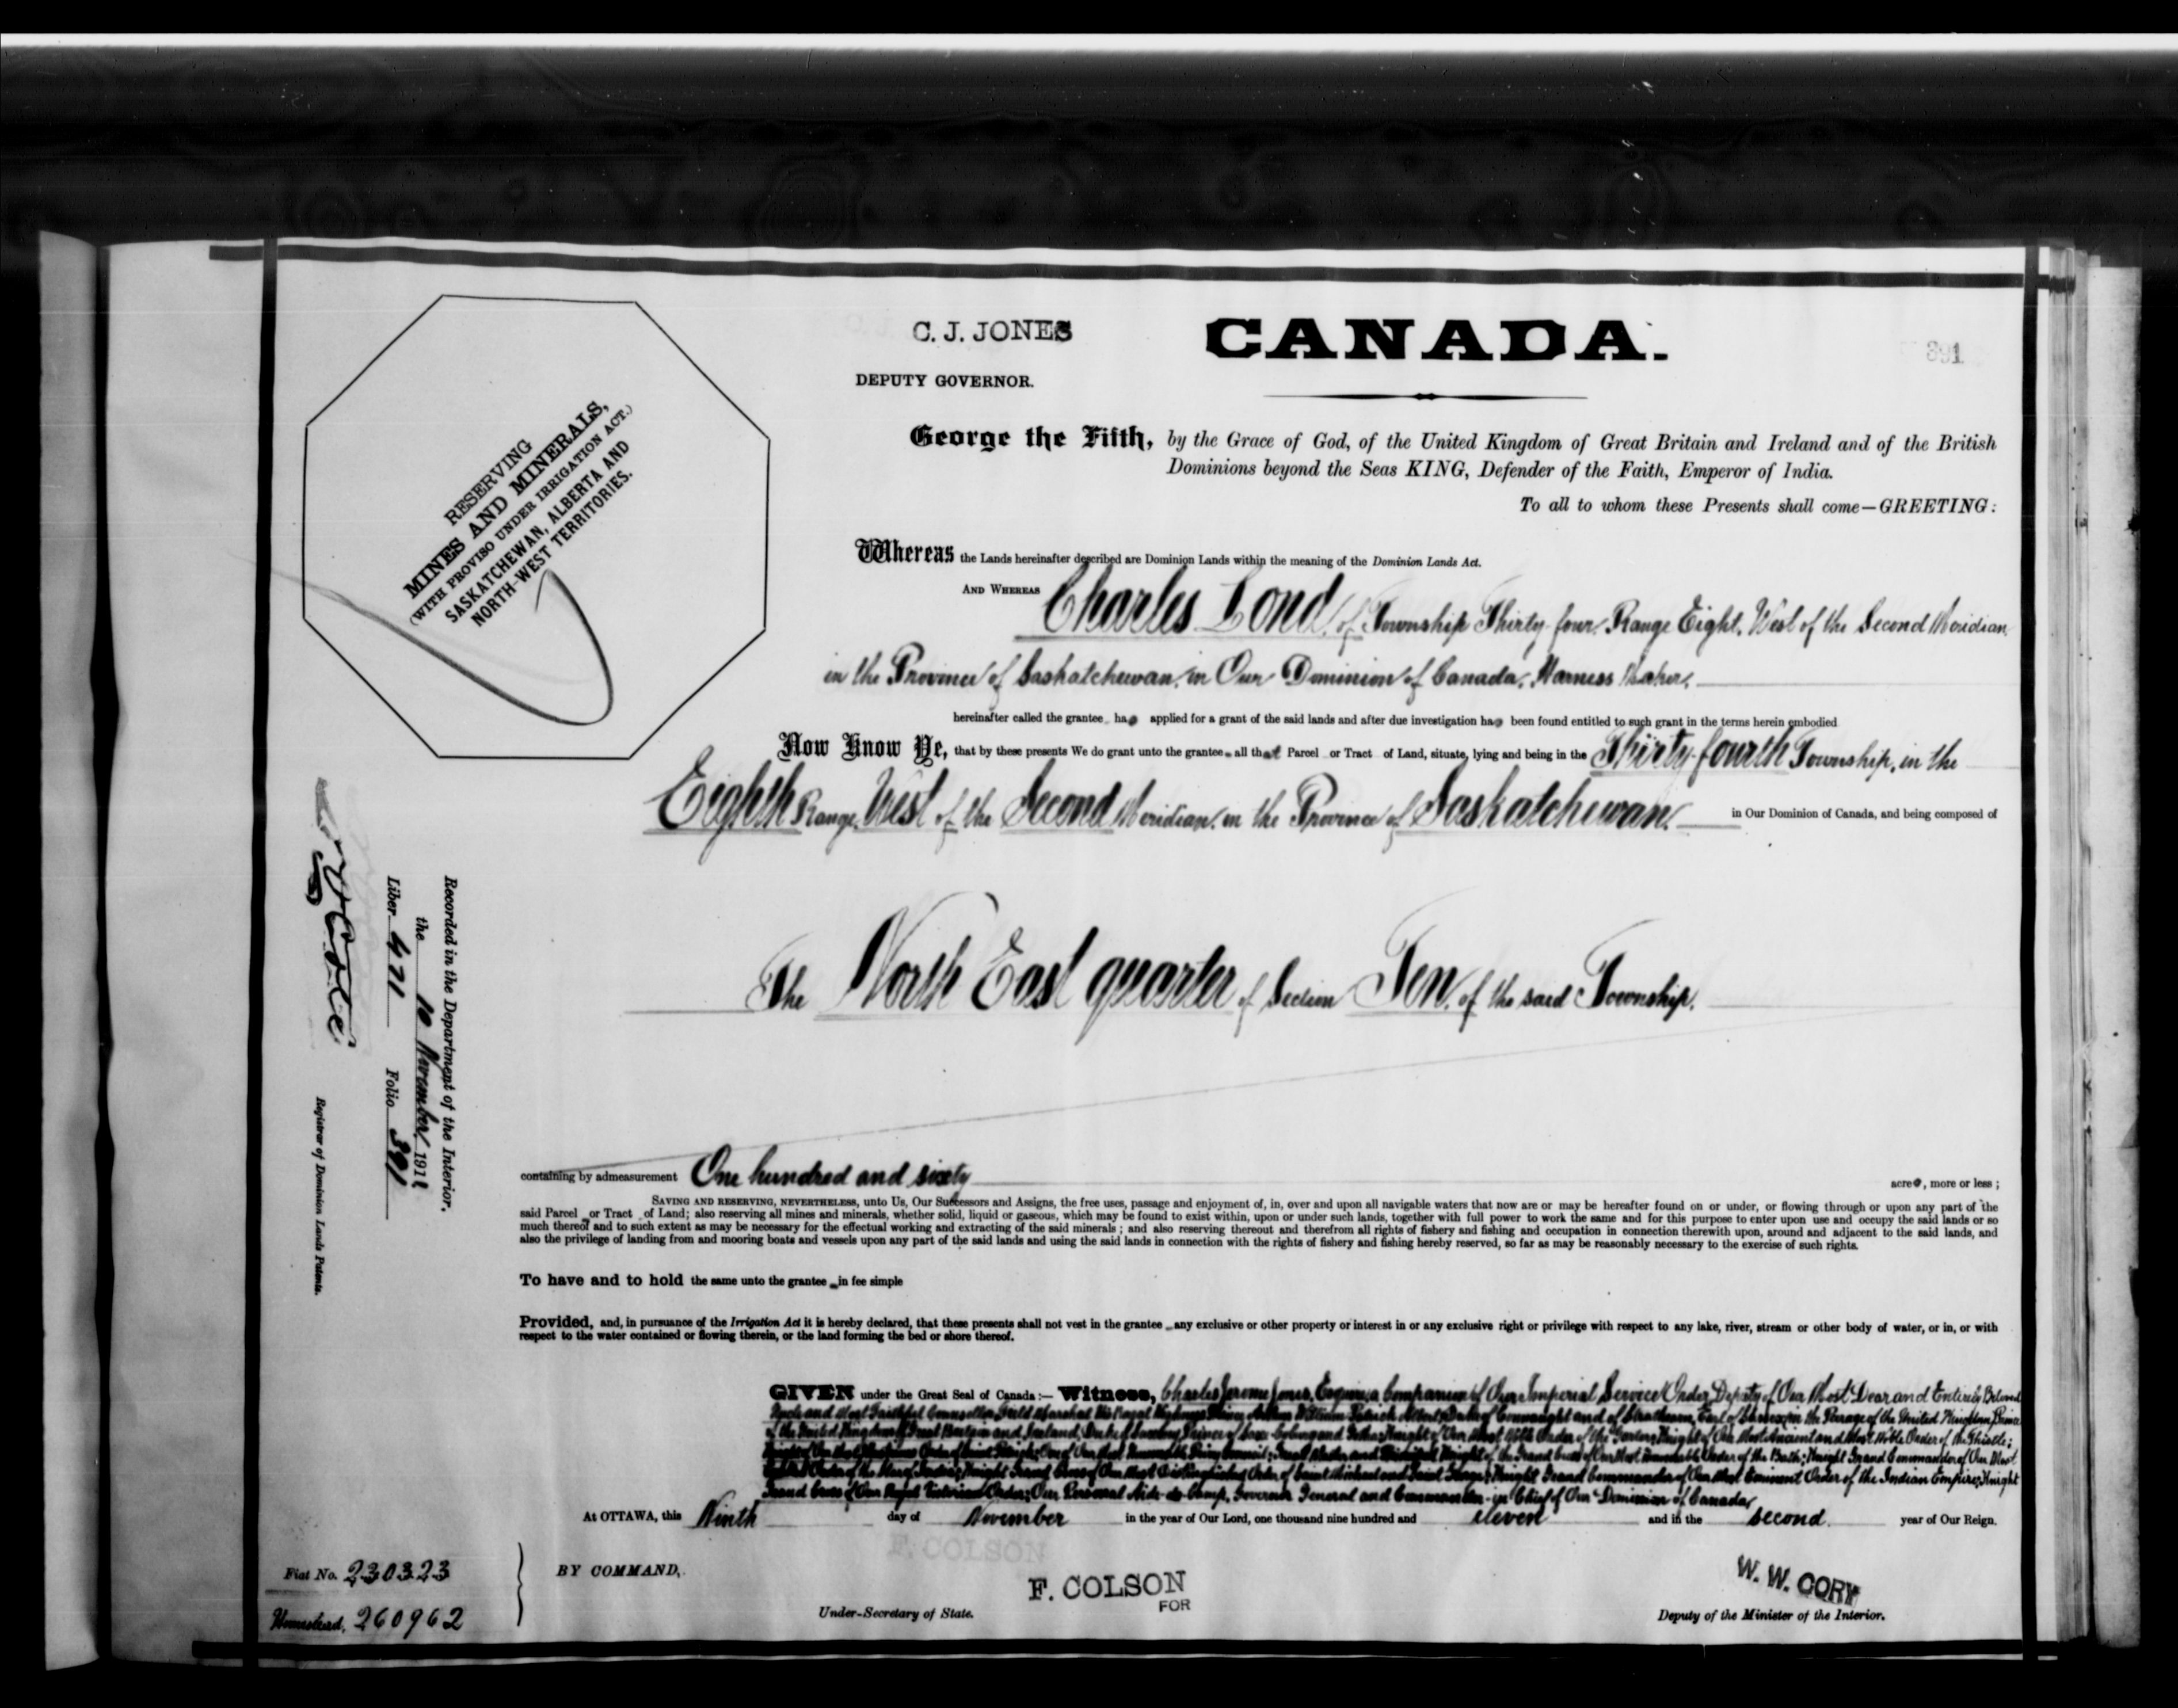 C. J. JONES
CANADA.
391
DEPUTY GOVERNOR.
RESERVING
MINES AND MINERALS,
(WITH PROVISO UNDER IRRIGATION ACT.)
SASKATCHEWAN, ALBERTA AND
NORTH-WEST TERRITORIES.
George the Fifth, by the Grace of God, of the United Kingdom of Great Britain and Ireland and of the British
Dominions beyond the Seas KING, Defender of the Faith, Emperor of India.
To all to whom these Presents shall come—GREETING:
Whereas the Lands hereinafter described are Dominion Lands within the meaning of the Dominion Lands Act.
AND WHEREAS Charles Lond, of Township Thirty-four, Range Eight, West of the Second Meridian,
in the Province of Saskatchewan, in Our Dominion of Canada, Harness Maker,
hereinafter called the grantee has applied for a grant of the said lands and after due investigation has been found entitled to such grant in the terms herein embodied
Now Know Ye, that by these presents We do grant unto the grantee all that Parcel or Tract of Land, situate, lying and being in the Thirty-fourth Township, in the
Eighth Range, West of the Second Meridian, in the Province of Saskatchewan, in Our Dominion of Canada, and being composed of
The North East quarter of Section Ten, of the said Township.
Recorded in the Department of the Interior,
the 10 November 1911
Liber 471 Folio 391
Registrar of Dominion Lands Patents.
containing by admeasurement One hundred and sixty acres, more or less;
SAVING AND RESERVING, NEVERTHELESS, unto Us, Our Successors and Assigns, the free uses, passage and enjoyment of, in, over and upon all navigable waters that now are or may be hereafter found on or under, or flowing through or upon any part of the
said Parcel or Tract of Land; also reserving all mines and minerals, whether solid, liquid or gaseous, which may be found to exist within, upon or under such lands, together with full power to work the same and for this purpose to enter upon use and occupy the said lands or so
much thereof and to such extent as may be necessary for the effectual working and extracting of the said minerals; and also reserving thereout and therefrom all rights of fishery and fishing and occupation in connection therewith upon, around and adjacent to the said lands, and
also the privilege of landing from and mooring boats and vessels upon any part of the said lands and using the said lands in connection with the rights of fishery and fishing hereby reserved, so far as may be reasonably necessary to the exercise of such rights.
To have and to hold the same unto the grantee in fee simple
Provided, and, in pursuance of the Irrigation Act it is hereby declared, that these presents shall not vest in the grantee any exclusive or other property or interest in or any exclusive right or privilege with respect to any lake, river, stream or other body of water, or in, or with
respect to the water contained or flowing therein, or the land forming the bed or shore thereof.
GIVEN under the Great Seal of Canada:— Witness, Charles Jerome Jones, Esquire, a Companion of Our Imperial Service Order, Deputy of Our Most Dear and Entirely Beloved
Uncle and Most Faithful Counsellor, Field Marshal His Royal Highness Prince Arthur William Patrick Albert, Duke of Connaught and of Strathearn, Earl of Sussex, in the Peerage of the United Kingdom, Prince
of the United Kingdom of Great Britain and Ireland, Duke of Saxony, Prince of Saxe-Coburg and Gotha; Knight of Our Most Noble Order of the Garter; Knight of Our Most Ancient and Most Noble Order of the Thistle;
Knight of Our Most Illustrious Order of Saint Patrick; One of Our Most Honourable Privy Council; Great Master and Principal Knight of the Grand Cross of Our Most Honourable Order of the Bath; Knight Grand Commander of Our Most
Exalted Order of the Star of India; Knight Grand Cross of Our Most Distinguished Order of Saint Michael and Saint George; Knight Grand Commander of Our Most Eminent Order of the Indian Empire; Knight
Grand Cross of Our Royal Victorian Order; Our Personal Aide-de-Camp, Governor General and Commander-in-Chief of Our Dominion of Canada,
At OTTAWA, this Ninth day of November in the year of Our Lord, one thousand nine hundred and eleven and in the second year of Our Reign.
F. COLSON
Fiat No. 230323
BY COMMAND,
F. COLSON
FOR
W. W. CORY
Homestead, 260962
Under-Secretary of State.
Deputy of the Minister of the Interior.